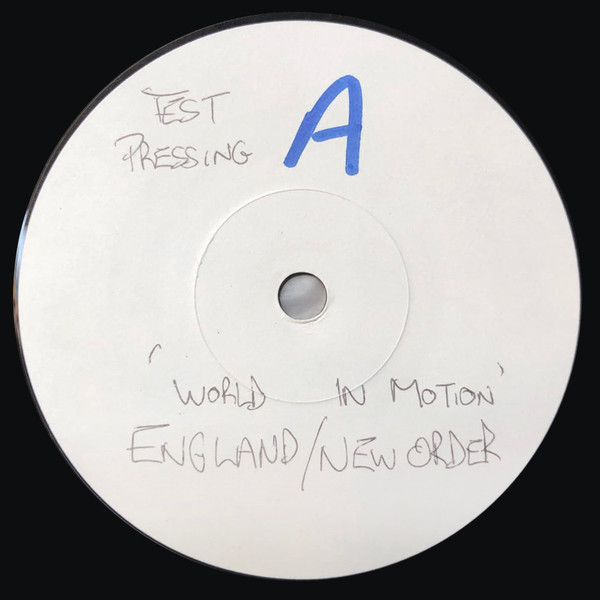 TEST
PRESSING
A
'WORLD IN MOTION'
ENGLAND/NEW ORDER